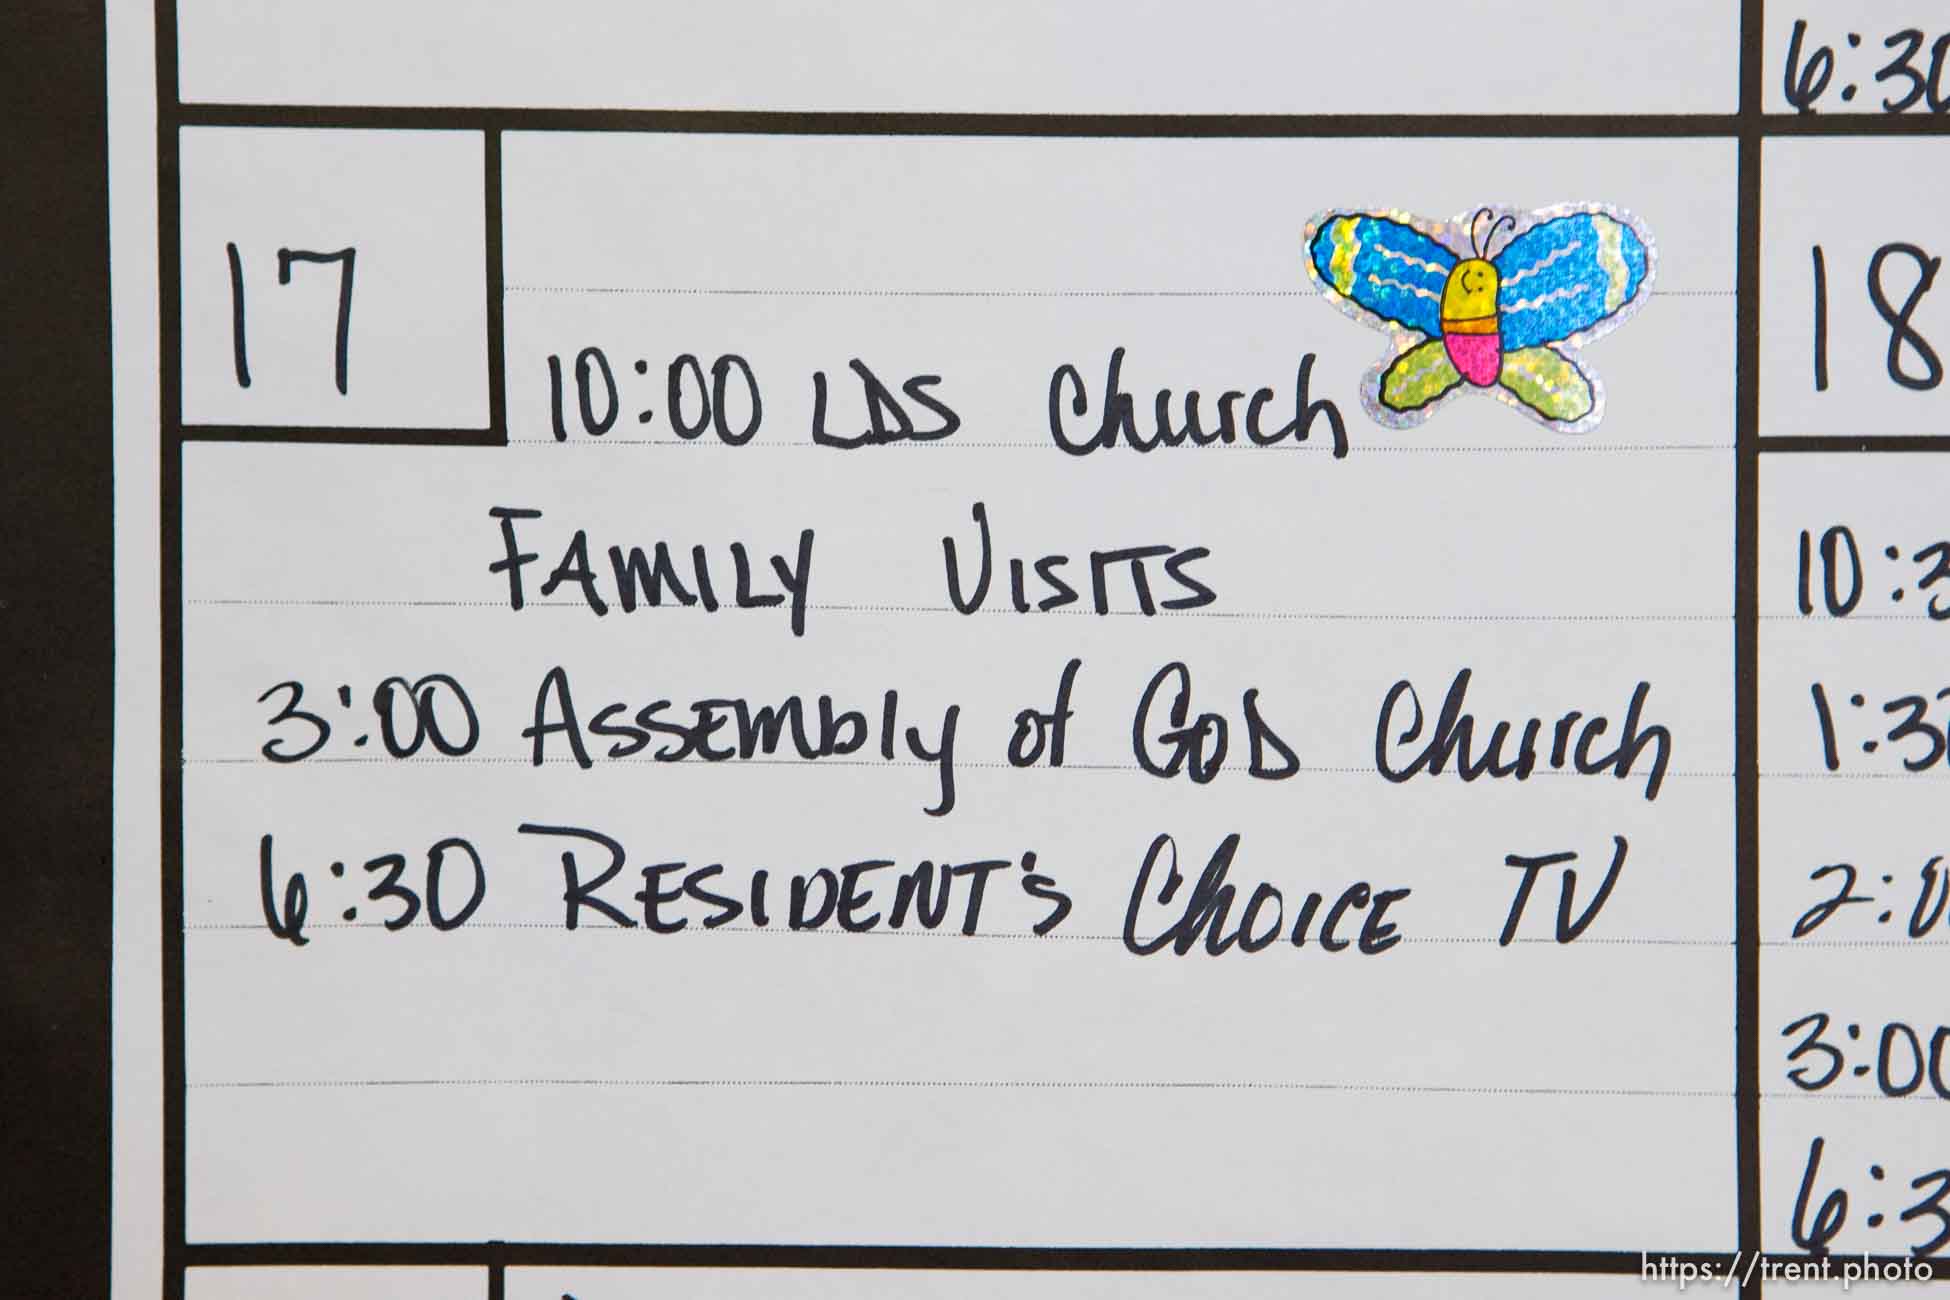 6:30
17
10:00 LDS Church
FAMILY VISITS
3:00 ASSEMbly of GOD Church
6:30 RESIDENT'S ChOICE TV
18
10:3
1:3
2:0
3:00
6:3
https://trent.photo